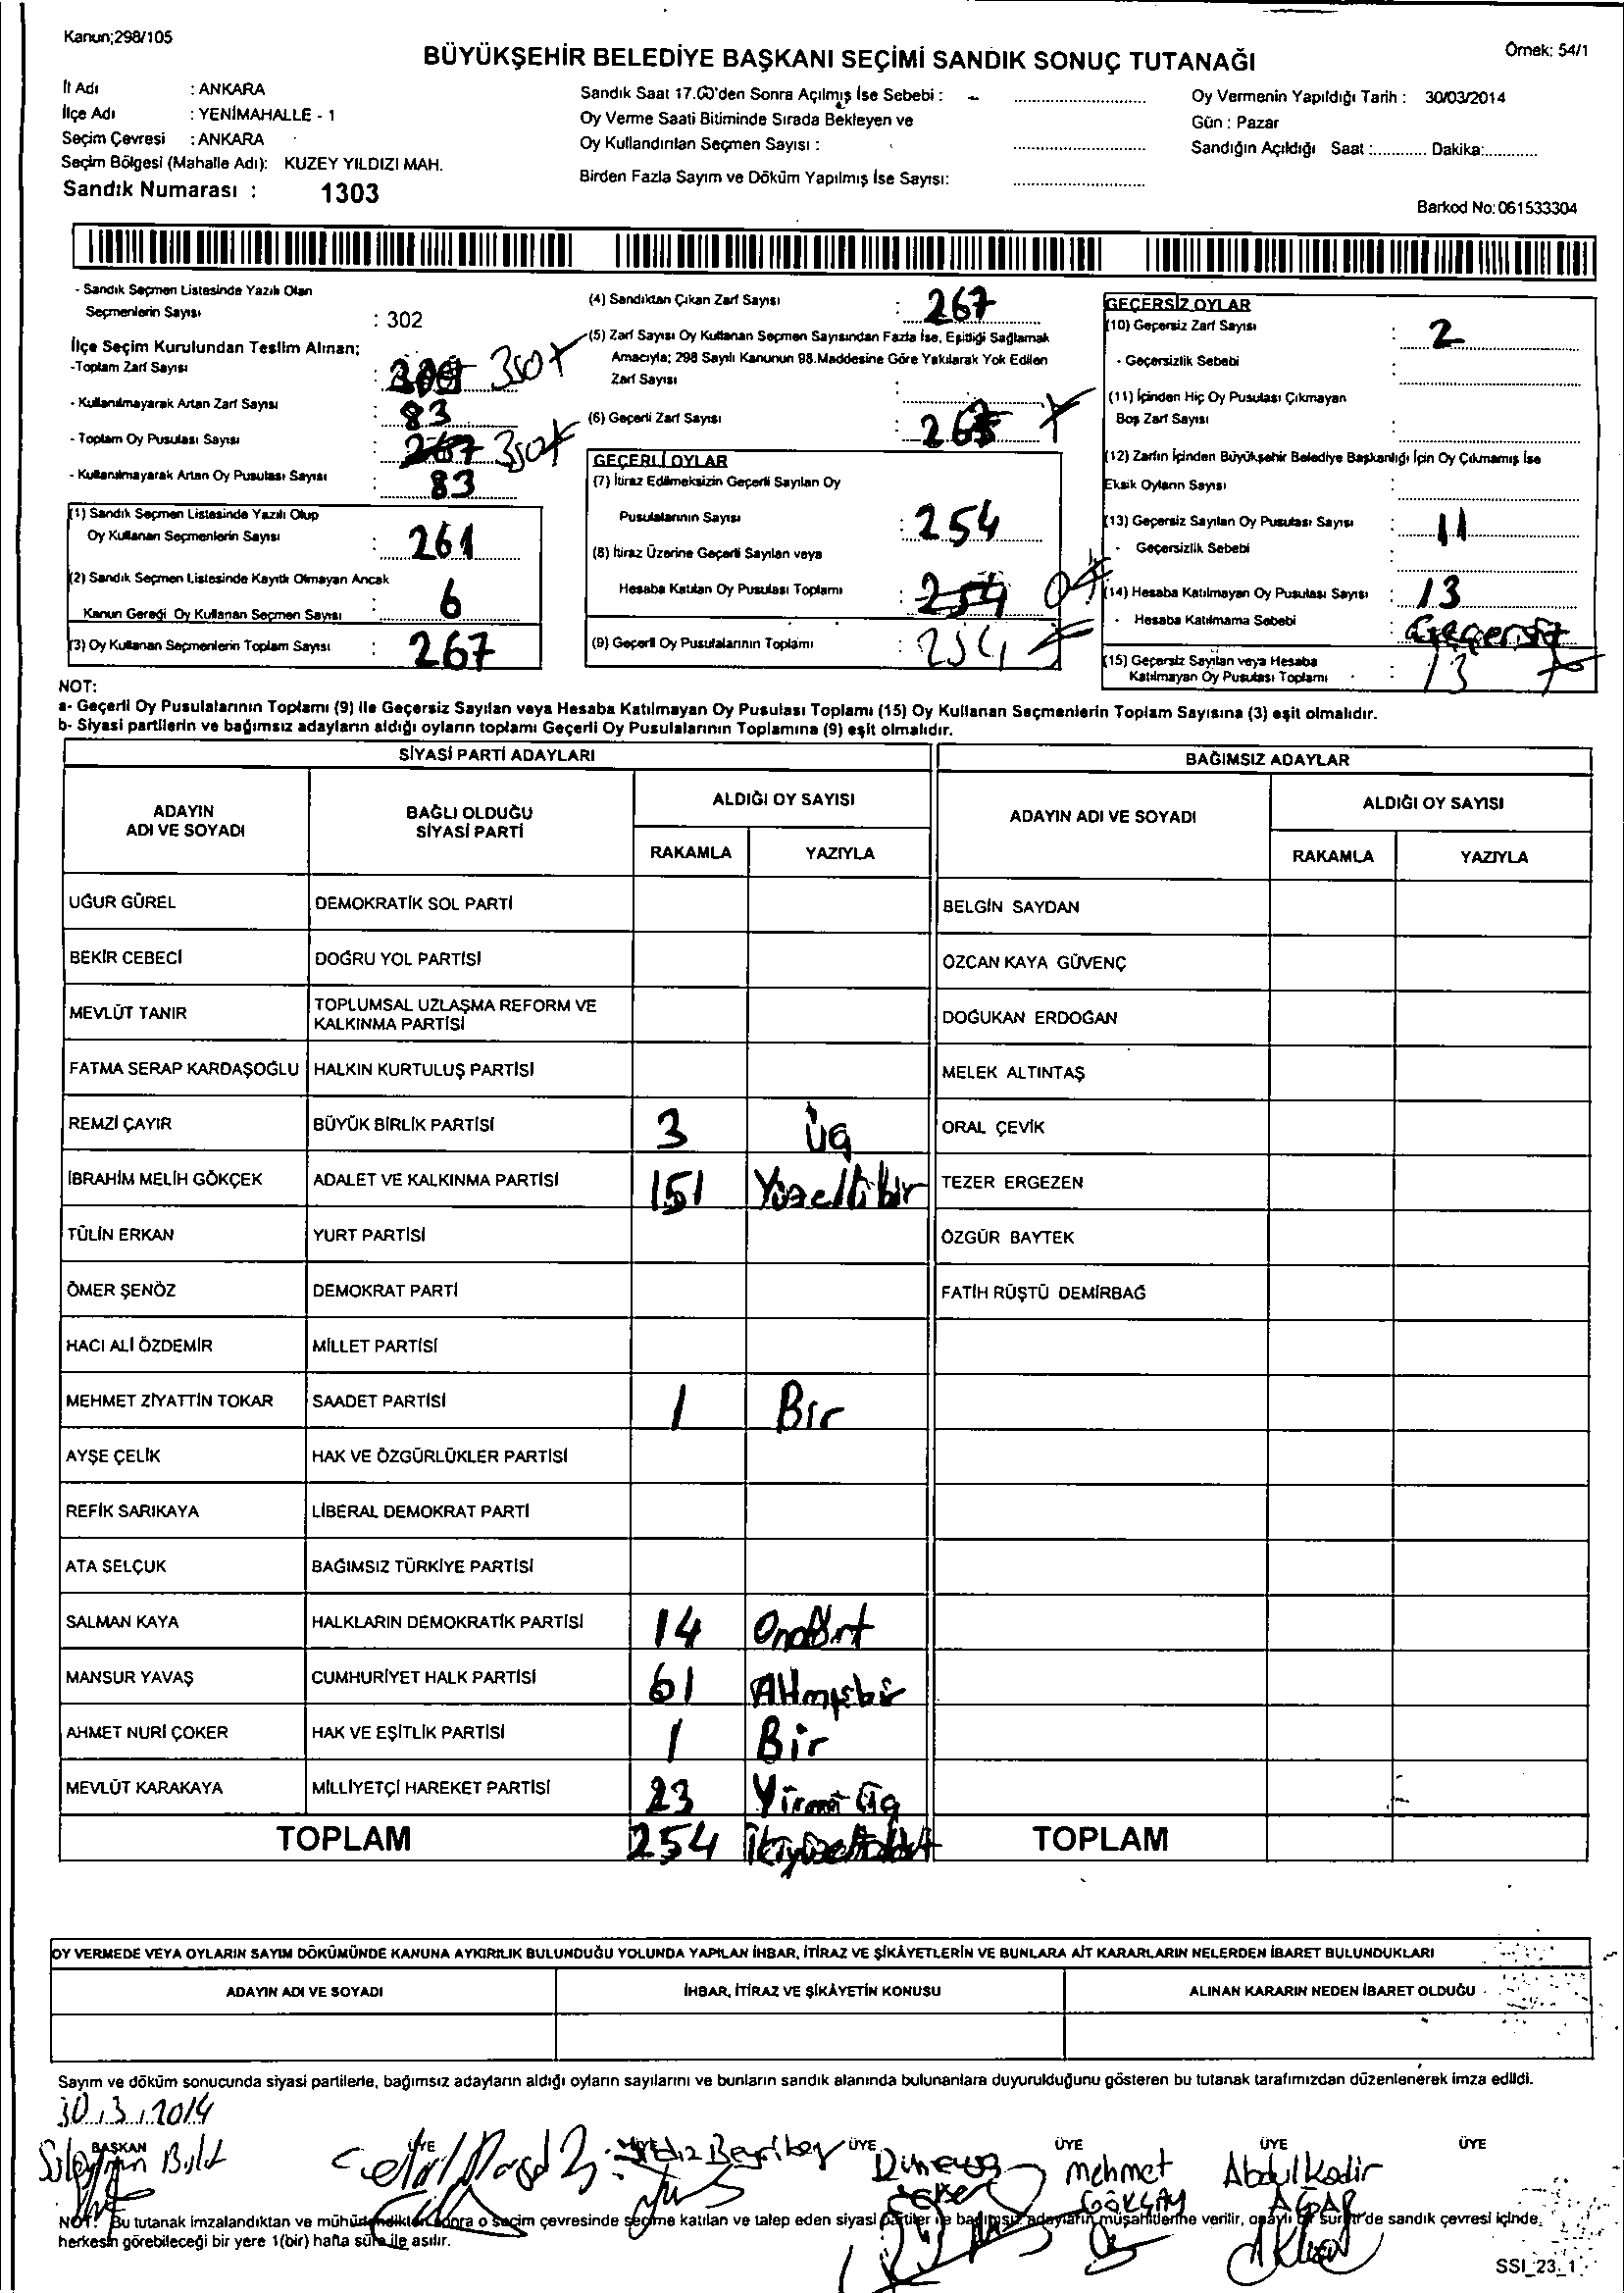 Kanun;298/105
BÜYÜKŞEHİR BELEDİYE BAŞKANI SEÇİMİ SANDIK SONUÇ TUTANAĞI
Örnek: 54/1
İl Adı : ANKARA
İlçe Adı : YENİMAHALLE - 1
Seçim Çevresi : ANKARA
Seçim Bölgesi (Mahalle Adı): KUZEY YILDIZI MAH.
Sandık Numarası : 1303
Sandık Saat 17.00'den Sonra Açılmış İse Sebebi : -
Oy Verme Saati Bitiminde Sırada Bekleyen ve
Oy Kullandırılan Seçmen Sayısı :
Birden Fazla Sayım ve Döküm Yapılmış İse Sayısı:
Oy Vermenin Yapıldığı Tarih : 30/03/2014
Gün : Pazar
Sandığın Açıldığı Saat :............ Dakika:............
Barkod No: 061533304
- Sandık Seçmen Listesinde Yazılı Olan
Seçmenlerin Sayısı : 302
İlçe Seçim Kurulundan Teslim Alınan;
-Toplam Zarf Sayısı : 350
- Kullanılmayarak Artan Zarf Sayısı : 83
- Toplam Oy Pusulası Sayısı : 267 350
- Kullanılmayarak Artan Oy Pusulası Sayısı : 83
(1) Sandık Seçmen Listesinde Yazılı Olup
Oy Kullanan Seçmenlerin Sayısı : 261
(2) Sandık Seçmen Listesinde Kayıtlı Olmayan Ancak
Kanun Gereği Oy Kullanan Seçmen Sayısı : 6
(3) Oy Kullanan Seçmenlerin Toplam Sayısı : 267
(4) Sandıktan Çıkan Zarf Sayısı : 267
(5) Zarf Sayısı Oy Kullanan Seçmen Sayısından Fazla İse, Eşitliği Sağlamak
Amacıyla; 298 Sayılı Kanunun 98.Maddesine Göre Yakılarak Yok Edilen
Zarf Sayısı :
(6) Geçerli Zarf Sayısı :
GEÇERLİ OYLAR
(7) İtiraz Edilmeksizin Geçerli Sayılan Oy
Pusulalarının Sayısı : 254
(8) İtiraz Üzerine Geçerli Sayılan veya
Hesaba Katılan Oy Pusulası Toplamı : 254 0
(9) Geçerli Oy Pusulalarının Toplamı : 254
GEÇERSİZ OYLAR
(10) Geçersiz Zarf Sayısı : 2
- Geçersizlik Sebebi :
(11) İçinden Hiç Oy Pusulası Çıkmayan
Boş Zarf Sayısı :
(12) Zarfın İçinden Büyükşehir Belediye Başkanlığı İçin Oy Çıkmamış İse
Eksik Oyların Sayısı :
(13) Geçersiz Sayılan Oy Pusulası Sayısı : 11
- Geçersizlik Sebebi :
(14) Hesaba Katılmayan Oy Pusulası Sayısı : 13
- Hesaba Katılmama Sebebi : Geçersiz
(15) Geçersiz Sayılan veya Hesaba
Katılmayan Oy Pusulası Toplamı : 13
NOT:
a- Geçerli Oy Pusulalarının Toplamı (9) ile Geçersiz Sayılan veya Hesaba Katılmayan Oy Pusulası Toplamı (15) Oy Kullanan Seçmenlerin Toplam Sayısına (3) eşit olmalıdır.
b- Siyasi partilerin ve bağımsız adayların aldığı oyların toplamı Geçerli Oy Pusulalarının Toplamına (9) eşit olmalıdır.
SİYASİ PARTİ ADAYLARI
BAĞIMSIZ ADAYLAR
ADAYIN ADI VE SOYADI
BAĞLI OLDUĞU SİYASİ PARTİ
ALDIĞI OY SAYISI
RAKAMLA YAZIYLA
ADAYIN ADI VE SOYADI
ALDIĞI OY SAYISI
RAKAMLA YAZIYLA
UĞUR GÜREL DEMOKRATİK SOL PARTİ BELGİN SAYDAN
BEKİR CEBECİ DOĞRU YOL PARTİSİ ÖZCAN KAYA GÜVENÇ
MEVLÜT TANIR TOPLUMSAL UZLAŞMA REFORM VE KALKINMA PARTİSİ DOĞUKAN ERDOĞAN
FATMA SERAP KARDAŞOĞLU HALKIN KURTULUŞ PARTİSİ MELEK ALTINTAŞ
REMZİ ÇAYIR BÜYÜK BİRLİK PARTİSİ 3 Üç ORAL ÇEVİK
İBRAHİM MELİH GÖKÇEK ADALET VE KALKINMA PARTİSİ 151 Yüzellibir TEZER ERGEZEN
TÜLİN ERKAN YURT PARTİSİ ÖZGÜR BAYTEK
ÖMER ŞENÖZ DEMOKRAT PARTİ FATİH RÜŞTÜ DEMİRBAĞ
HACI ALİ ÖZDEMİR MİLLET PARTİSİ
MEHMET ZİYATTİN TOKAR SAADET PARTİSİ 1 Bir
AYŞE ÇELİK HAK VE ÖZGÜRLÜKLER PARTİSİ
REFİK SARIKAYA LİBERAL DEMOKRAT PARTİ
ATA SELÇUK BAĞIMSIZ TÜRKİYE PARTİSİ
SALMAN KAYA HALKLARIN DEMOKRATİK PARTİSİ 14 Ondört
MANSUR YAVAŞ CUMHURİYET HALK PARTİSİ 61 Altmışbir
AHMET NURİ ÇOKER HAK VE EŞİTLİK PARTİSİ 1 Bir
MEVLÜT KARAKAYA MİLLİYETÇİ HAREKET PARTİSİ 23 Yirmi üç
TOPLAM 254 TOPLAM
OY VERMEDE VEYA OYLARIN SAYIM DÖKÜMÜNDE KANUNA AYKIRILIK BULUNDUĞU YOLUNDA YAPILAN İHBAR, İTİRAZ VE ŞİKÂYETLERİN VE BUNLARA AİT KARARLARIN NELERDEN İBARET BULUNDUKLARI
ADAYIN ADI VE SOYADI İHBAR, İTİRAZ VE ŞİKÂYETİN KONUSU ALINAN KARARIN NEDEN İBARET OLDUĞU
Sayım ve döküm sonucunda siyasi partilerle, bağımsız adayların aldığı oyların sayılarını ve bunların sandık alanında bulunanlara duyurulduğunu gösteren bu tutanak tarafımızdan düzenlenerek imza edildi.
30.3.2014
BAŞKAN ÜYE ÜYE ÜYE ÜYE ÜYE ÜYE
Süleyman Bulut
Mehmet GÖKÇAY
Abdulkadir
NOT: Bu tutanak imzalandıktan ve mühürlendikten sonra o seçim çevresinde seçime katılan ve talep eden siyasi partiler ile bağımsız adayların müşahitlerine verilir, onaylı bir sureti de sandık çevresi içinde,
herkesin görebileceği bir yere 1(bir) hafta süre ile asılır.
SSI_23_1